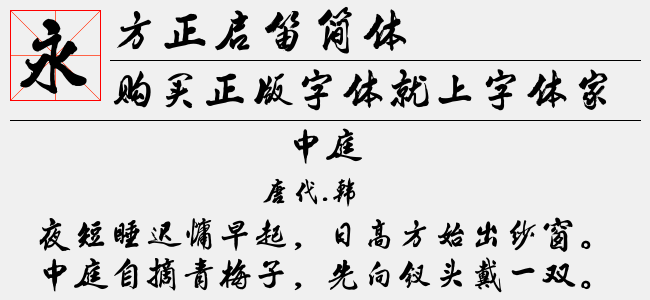 永
方正启笛简体
购买正版字体就上字体家
中庭
唐代.韩
夜短睡迟慵早起，日高方始出纱窗。
中庭自摘青梅子，先向钗头戴一双。